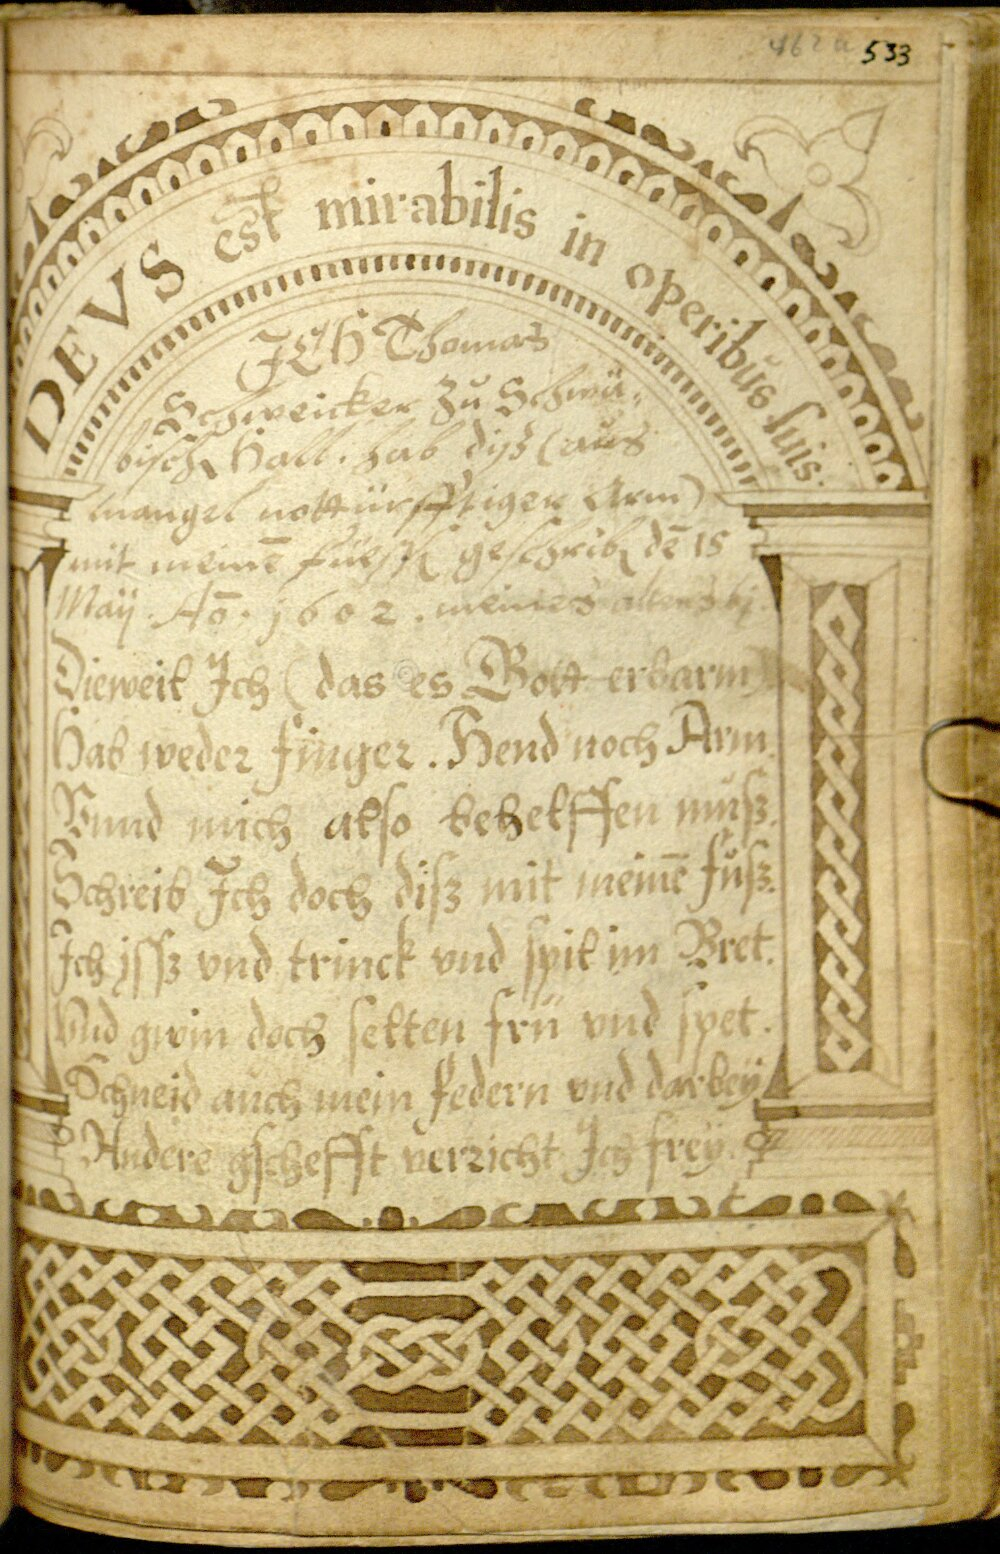 462a 533
DEVS est mirabilis in operibus suis.
JCH Thomas
Schweicker zů Schwä-
bisch Hall. hab diß (aus
mangel nottürfftiger Arm)
mit meinē füeßē geschribē dē 15
Maij. Aō. 1602. meines alters
Dieweil Jch (das es Gott erbarm)
Hab weder finger. Hend noch Arm.
Vnnd mich also behelffen můß.
Schreib Jch doch disz mit meinē fůsz.
Jch jssz vnd trinck vnd spil im Bret.
Vnd gwin doch selten frü vnd spet.
Schneid auch mein federn vnd darbeÿ
Andere gschefft verricht Jch freÿ.